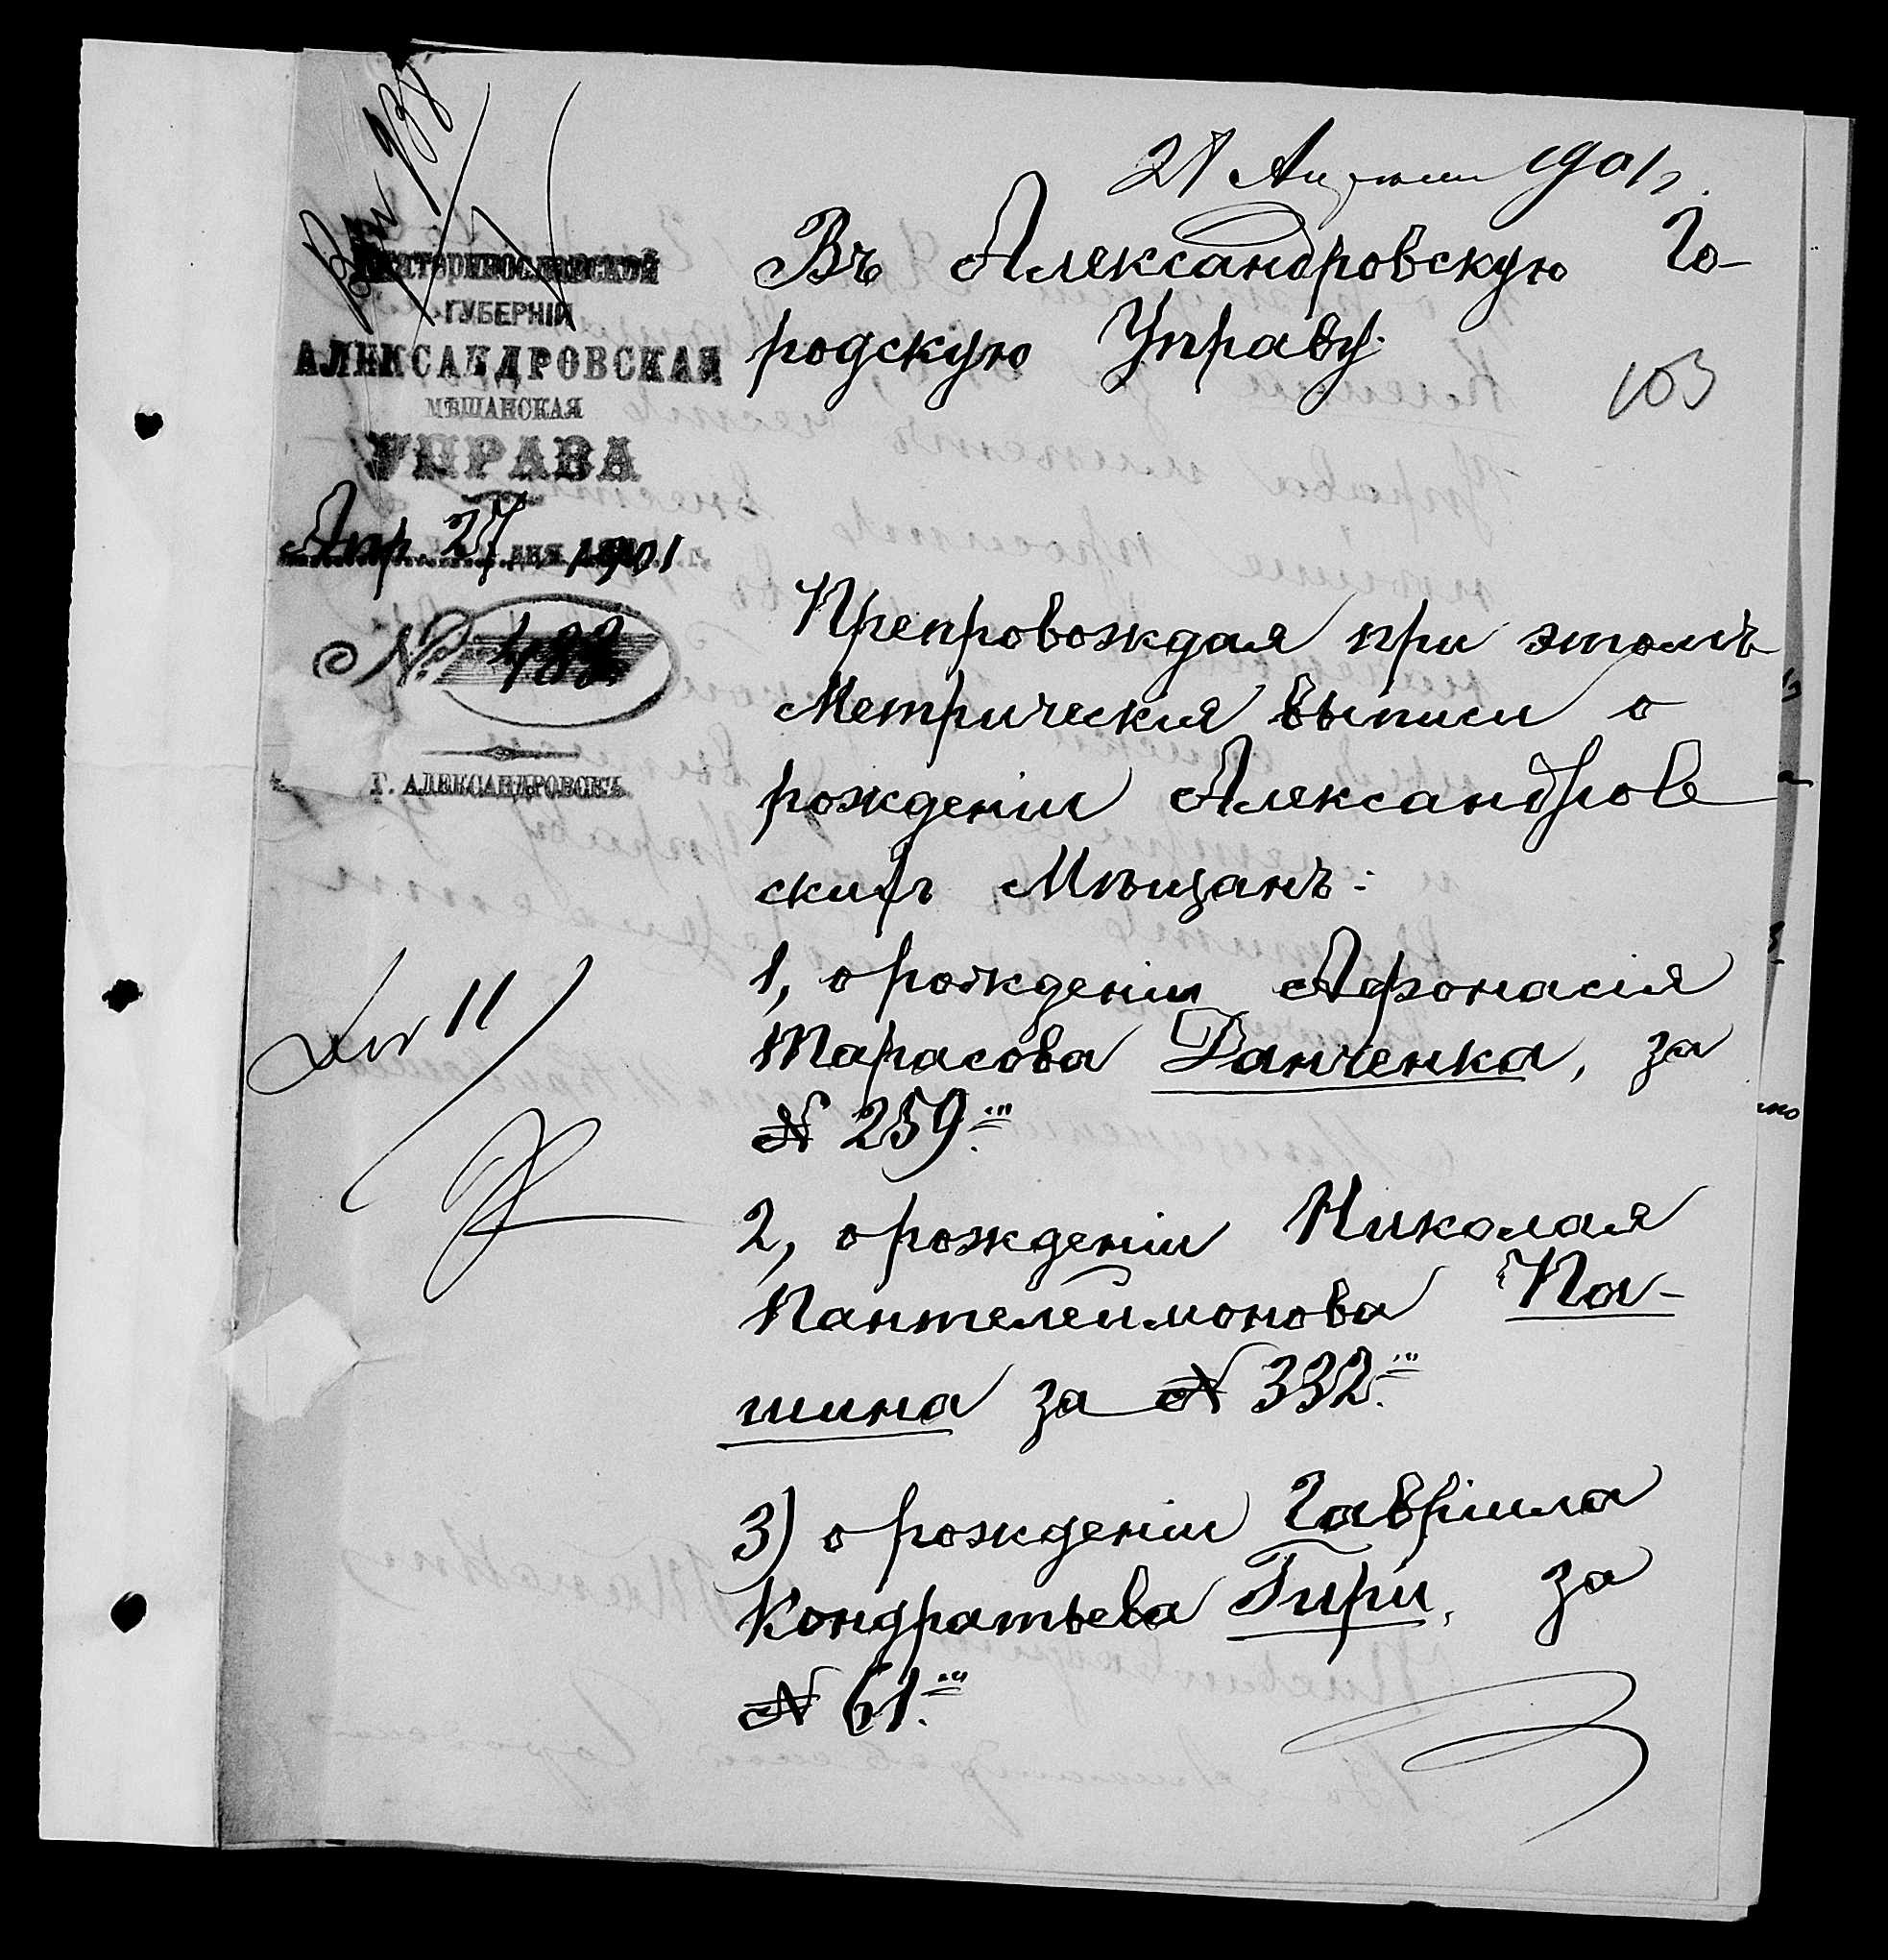 27 Апреля 1901 г.
Екатеринославской
ГУБЕРНІИ
АЛЕКСАНДРОВСКАЯ
МѢЩАНСКАЯ
УПРАВА
Апр. 27 дня 1901 г.
№ 483
Г. АЛЕКСАНДРОВСКЪ
Въ Александровскую Го-
родскую Управу.
103
Препровождая при этомъ
Метрическія выписи о
рожденіи Александров
скихъ Мѣщанъ:
1, о рожденіи Афонасія
Тарасова Данченка, за
№ 259.
2, о рожденіи Николая
Пантелеимонова Па-
шина за № 332.
3) о рожденіи Гавріила
Кондратьева Гири, за
№ 61.